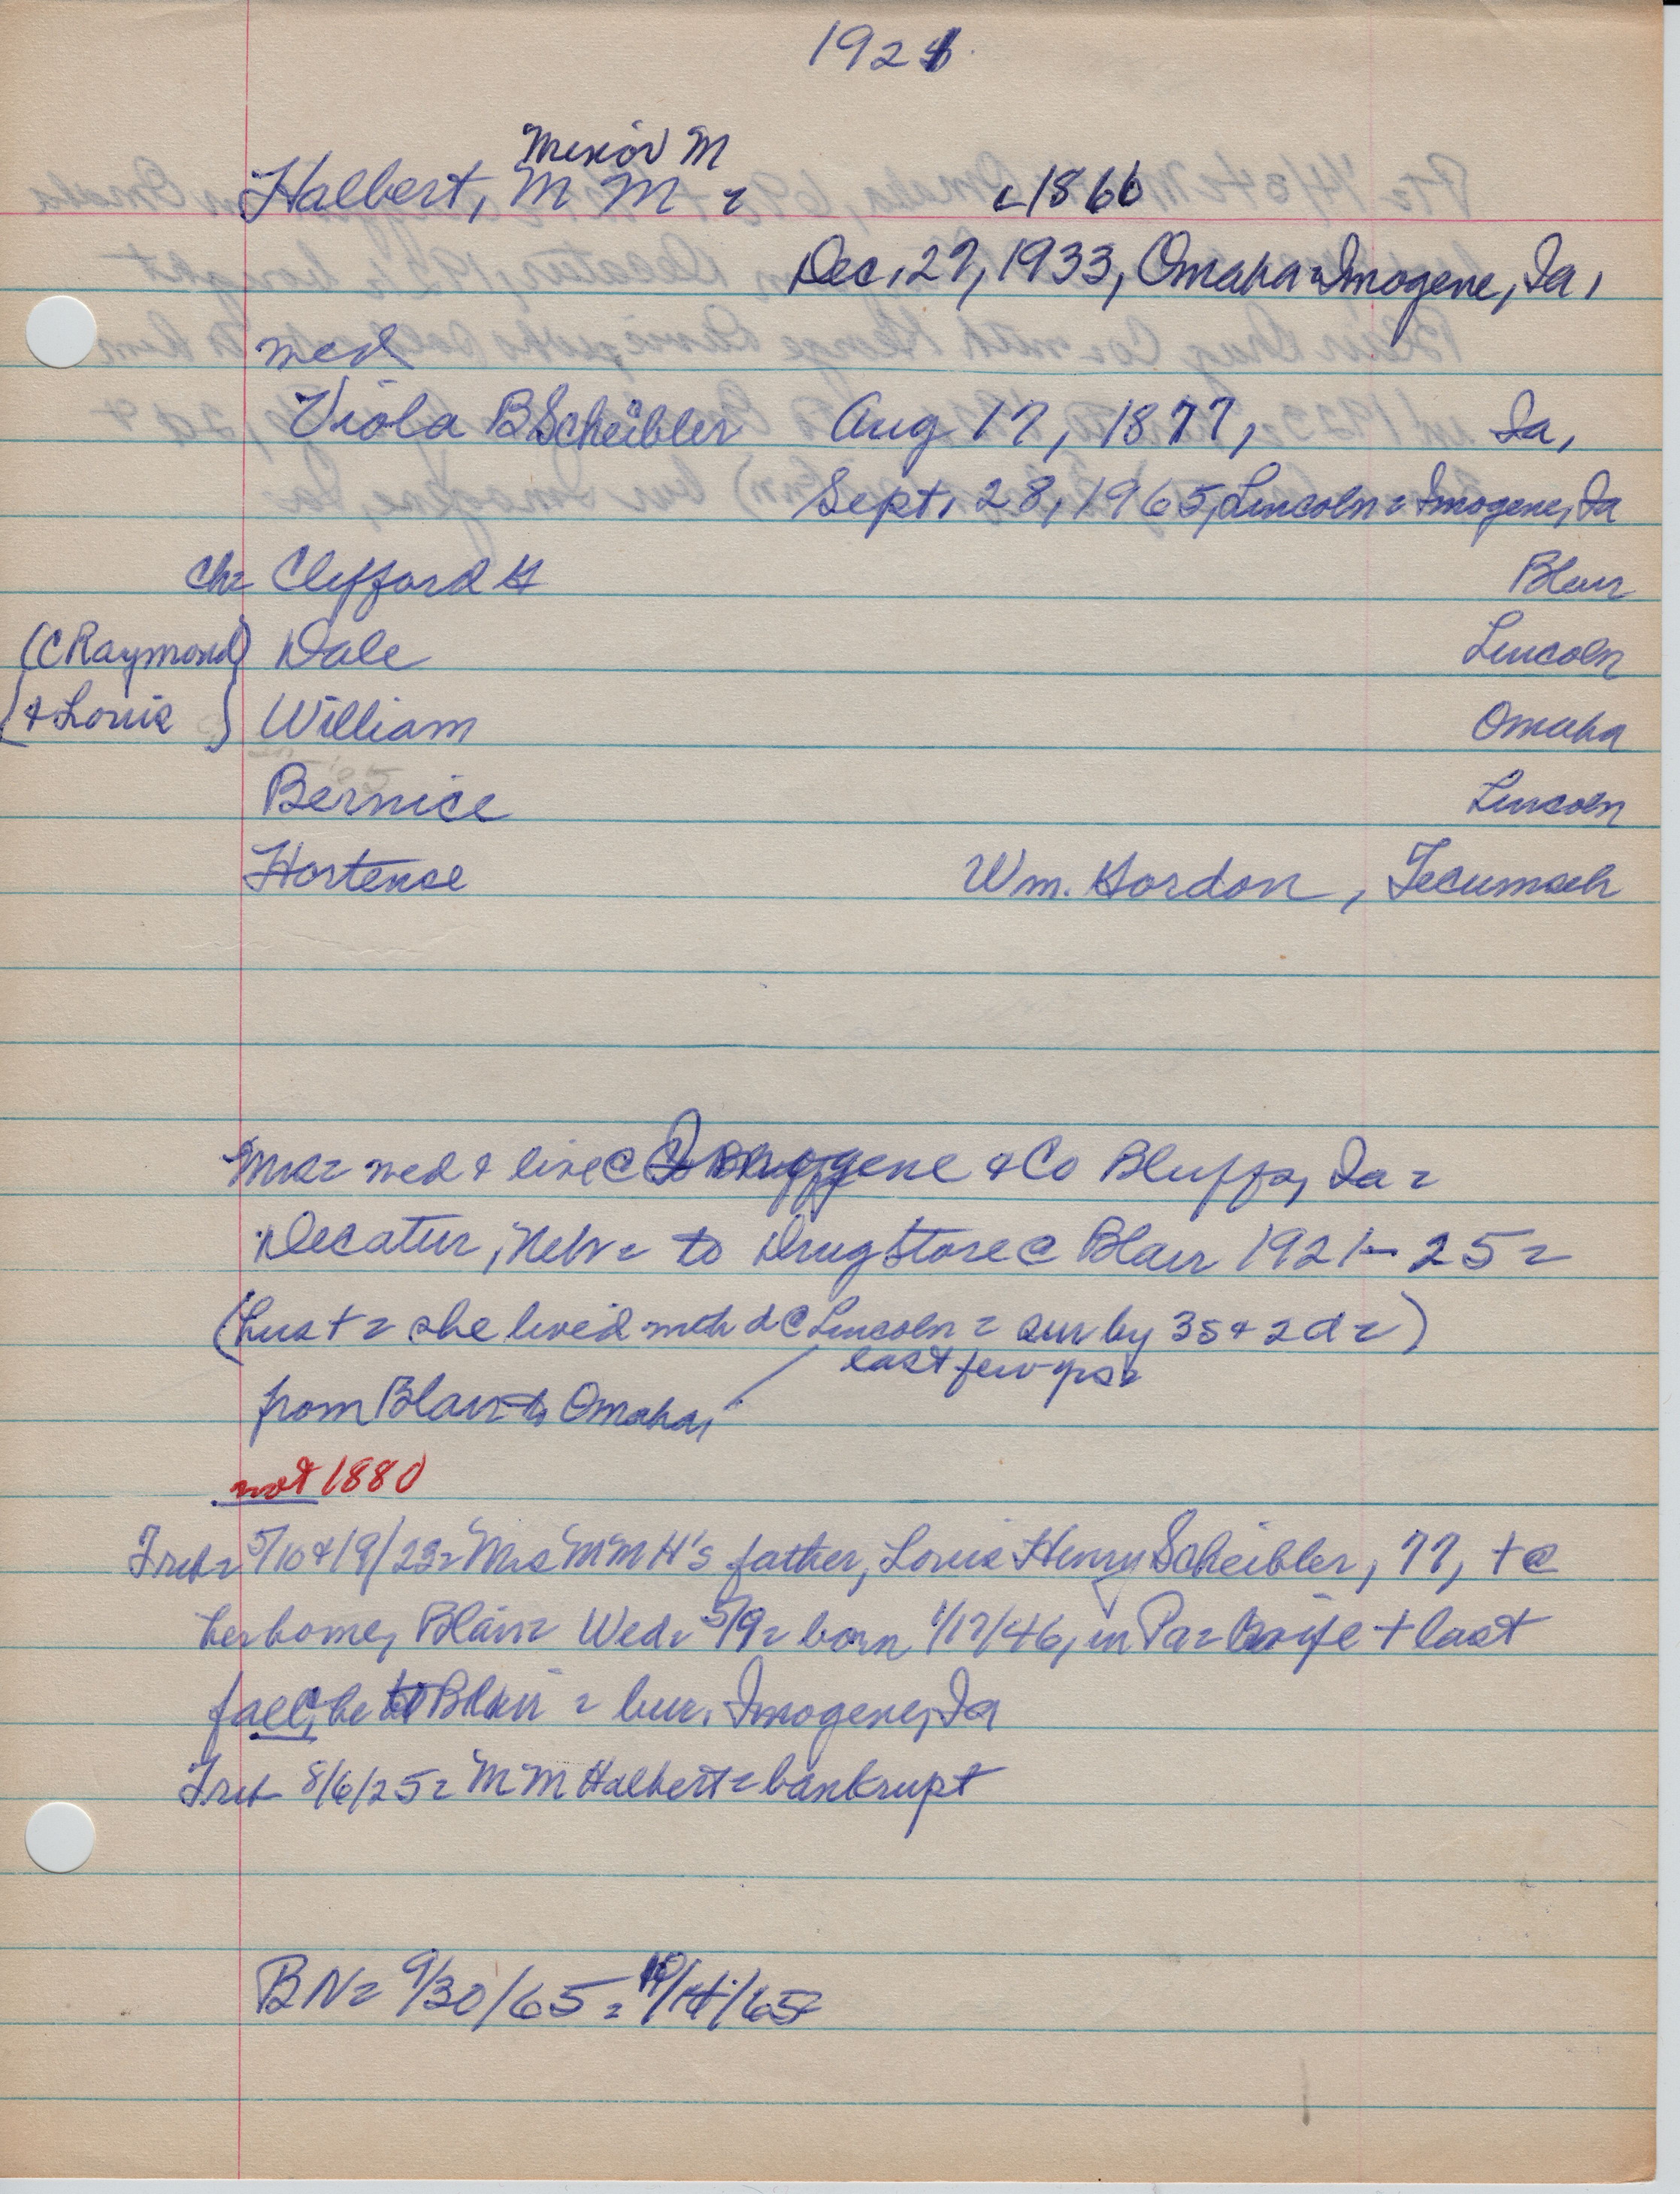 1921
Minor M
Halbert, M M = c1866
Dec. 27, 1933, Omaha = Imogene, Ia,
med
Viola B Scheibler Aug 17, 1877, Ia,
Sept. 28, 1965, Lincoln = Imogene, Ia
ch= Clifford H Blair
(C Raymond) Dale Lincoln
(& Louis) William Omaha
Bernice Lincoln
Hortense Wm. Gordon, Tecumseh
Mrs= med & live @ Imogene & Co Bluffs, Ia =
Decatur, Nebr = to Drug Store @ Blair 1921-25 =
(Hus + = she lived with d @ Lincoln = sur by 3s & 2d =)
last few yrs
from Blair to Omaha,
not 1880
Trib= 5/10 & 19/23= Mrs M M H's father, Louis Henry Scheibler, 77, + @
her home, Blair= Wed. 5/9= born 1/17/46, in Pa= wife + last
fall, he to Blair = bur. Imogene, Ia
Trib 8/6/25= M M Halbert = bankrupt
BN= 9/30/65 = 10/14/65